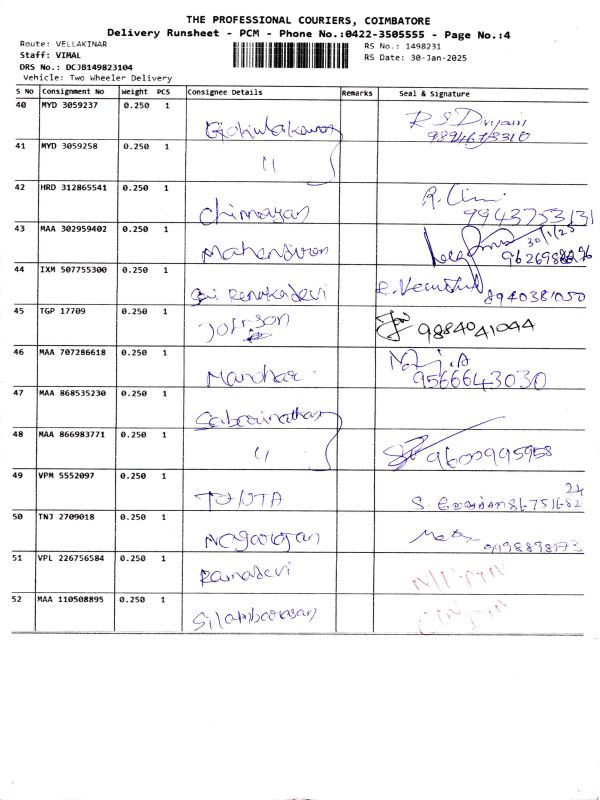 THE PROFESSIONAL COURIERS, COIMBATORE
Delivery Runsheet - PCM - Phone No.:0422-3505555 - Page No.:4
Route: VELLAKINAR
RS No.: 1498231
Staff: VIMAL
RS Date: 30-Jan-2025
DRS No.: DCJB149823104
Vehicle: Two Wheeler Delivery
S No Consignment No Weight PCS Consignee Details Remarks Seal & Signature
40 MYD 3059237 0.250 1
41 MYD 3059258 0.250 1 "
42 HRD 312865541 0.250 1 Chinnayan 9943753131
43 MAA 302959402 0.250 1 30/1/25
44 IXM 507755300 0.250 1 Sri Renukadevi 8940381050
45 TGP 17709 0.250 1 Johnson 9884041044
46 MAA 707286618 0.250 1 Manohar 9566643030
47 MAA 868535230 0.250 1 Sabarinathan
48 MAA 866983771 0.250 1 " 9600995958
49 VPM 5552097 0.250 1 TOYOTA
50 TNJ 2709018 0.250 1 Nagarajan
51 VPL 226756584 0.250 1 Ramadevi
52 MAA 110508895 0.250 1 Silambarasan